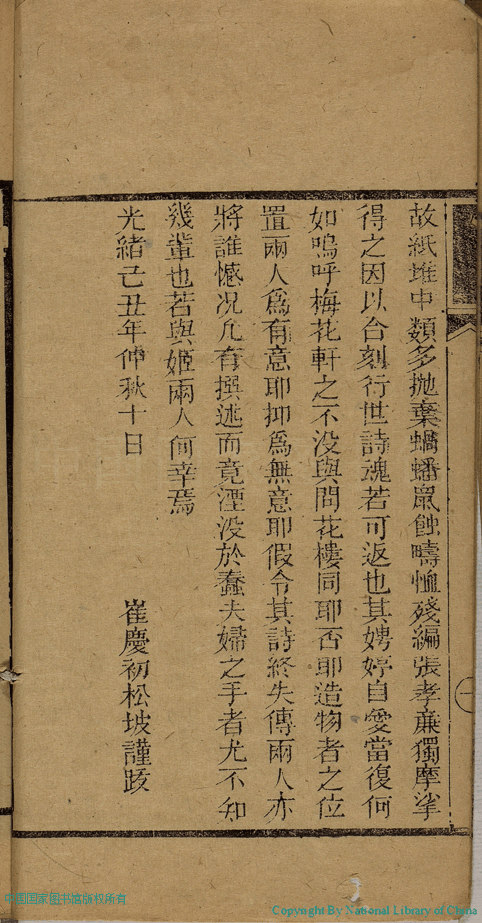 故紙堆中類多抛棄蝸蟠鼠蝕疇恤殘編張孝亷獨摩挲
得之因以合刻行世詩魂若可返也其娉婷自愛當復何
如嗚呼梅花軒之不没與問花樓同耶否耶造物者之位
置兩人爲有意耶抑爲無意耶假令其詩終失傳兩人亦
將誰憾况凢有撰述而竟湮没於蠢夫婦之手者尤不知
幾輩也若與姬兩人何幸焉
光緒己丑年仲秋十日
崔慶初松坡謹跋
一
中国国家图书馆版权所有
Copyright By National Library of China